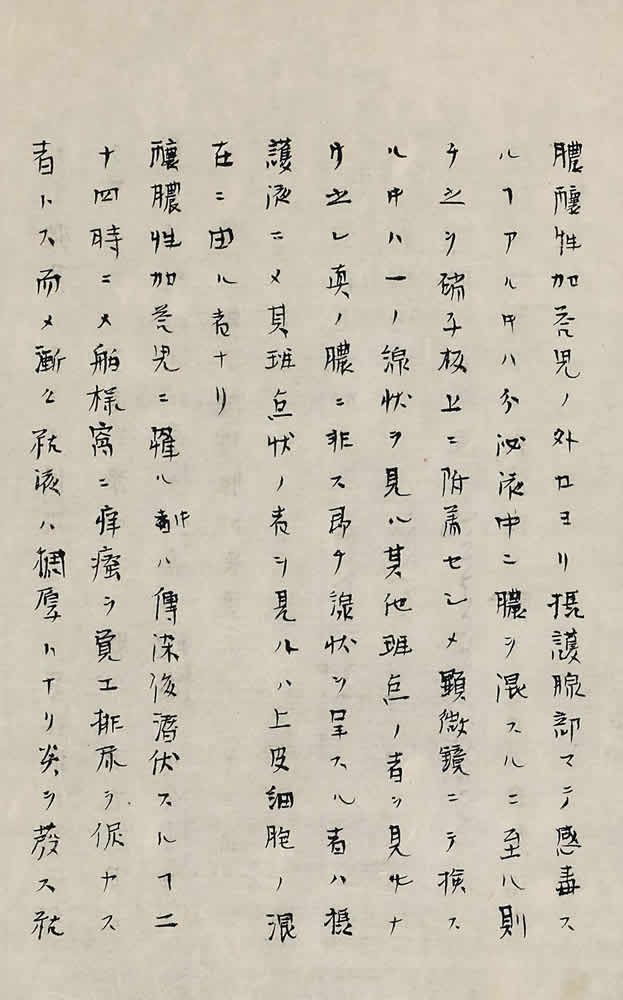 膿釀性加荅児ノ外口ヨリ摂護腺部マテ感毒ス
ルヿアル时ハ分泌液中ニ膿ヲ混スルニ至ル則
チ之ヲ硝子板上ニ附著セシメ顕微鏡ニテ検ス
ル时ハ一ノ線状ヲ見ル其他斑点ノ者ヲ見サナ
リ之レ真ノ膿ニ非ス即チ線状ヲ呈スル者ハ摂
護液ニメ其斑点状ノ者ヲ見ルハ上皮細胞ノ混
在ニ由ル者ナリ
釀膿性加荅児ニ罹ル时ハ傳染後潜伏スルヿ二
十四時ニメ舶様窩ニ痒瘙ヲ覓エ排尿ヲ促ナス
者トス而メ漸々粘液ハ稠厚トナリ炎ヲ發ス粘